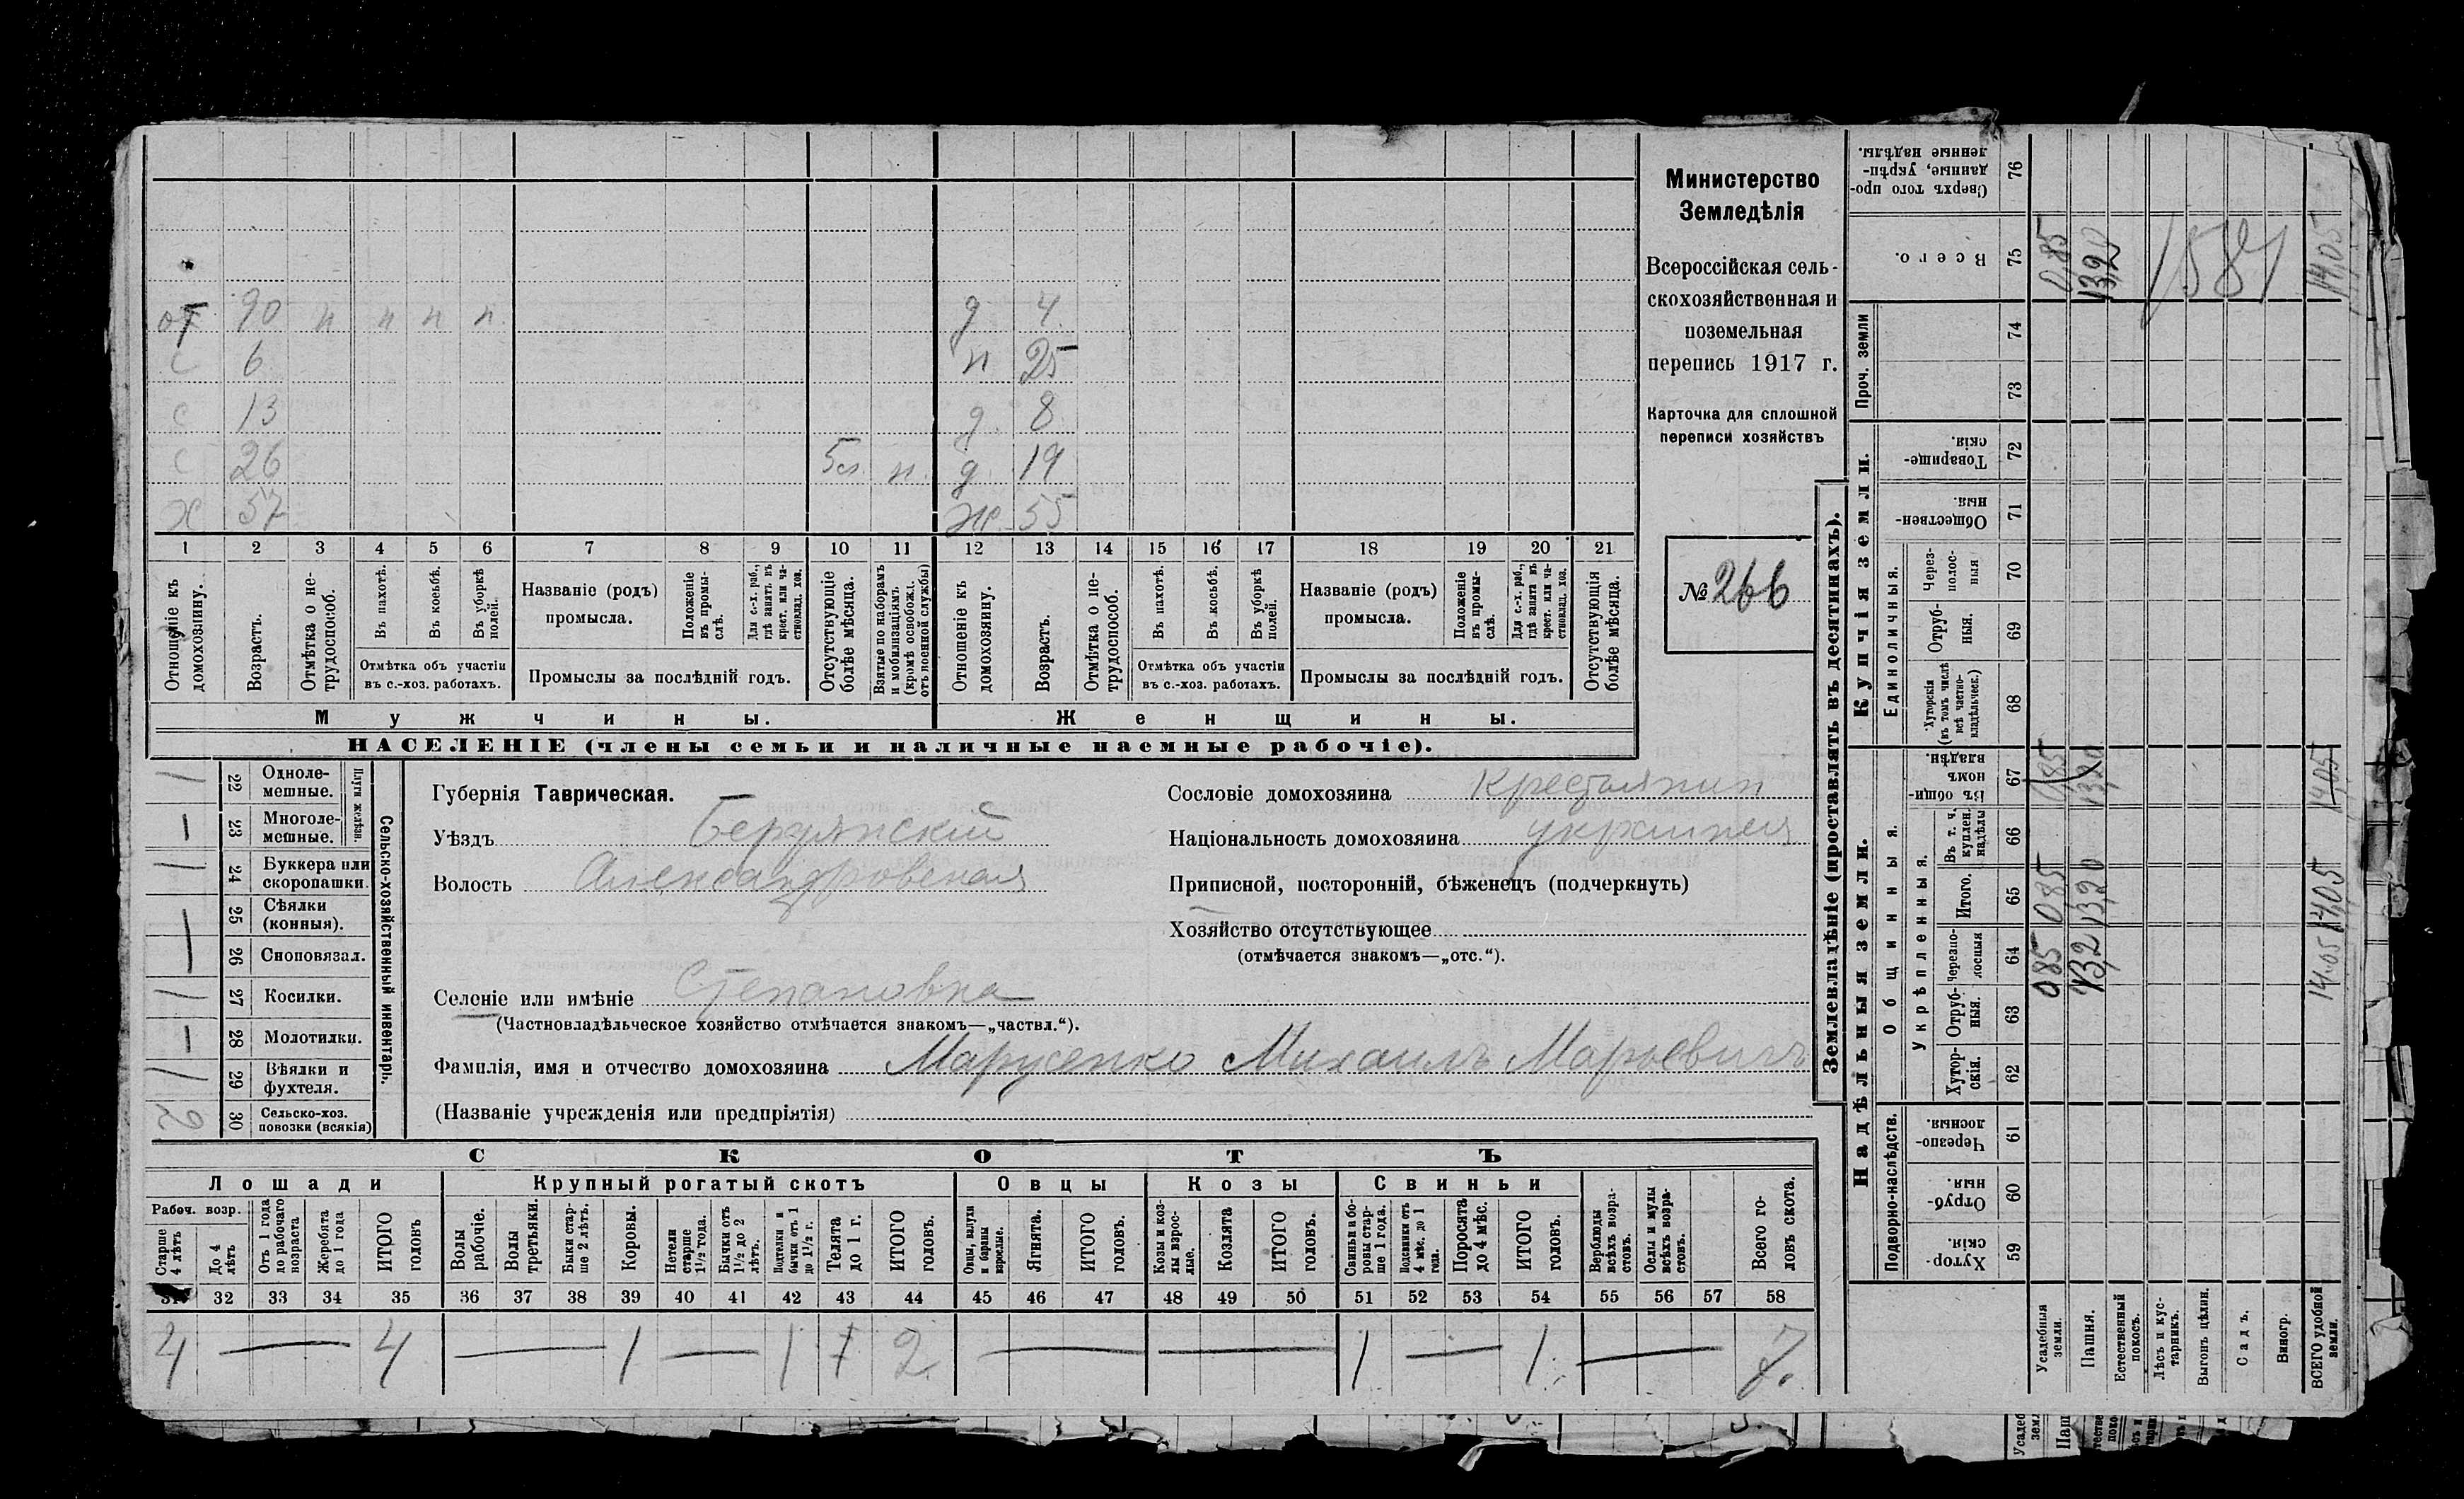 от 90 н н н н. д 4
с 6 н 25
с 13 д. 8
с 26 н. д 19
х 57 ж 55
1 2 3 4 5 6 7 8 9 10 11 12 13 14 15 16 17 18 19 20 21
Отношеніе къ домохозяину.
Возрастъ.
Отмѣтка о не-
трудоспособ.
Въ пахотѣ.
Въ косьбѣ.
Въ уборкѣ полей.
Отмѣтка объ участіи
въ с.-хоз. работахъ.
Названіе (родъ)
промысла.
Положеніе въ промы-
слѣ.
Для с.-х. раб., гдѣ занятъ въ крест. или ча-
стновлад. хоз.
Промыслы за послѣдній годъ.
Отсутствующіе болѣе мѣсяца.
Взятые по наборамъ и мобилизаціямъ (кромѣ освобожд. отъ военной службы)
Отношеніе къ домохозяину.
Возрастъ.
Отмѣтка о не-
трудоспособ.
Въ пахотѣ.
Въ косьбѣ.
Въ уборкѣ полей.
Отмѣтка объ участіи
въ с.-хоз. работахъ.
Названіе (родъ)
промысла.
Положеніе въ промы-
слѣ.
Для с.-х. раб., гдѣ занятъ въ крест. или ча-
стновлад. хоз.
Промыслы за послѣдній годъ.
Отсутствующія болѣе мѣсяца.
Мужчины. Женщины.
НАСЕЛЕНІЕ (члены семьи и наличные наемные рабочіе).
Министерство
Земледѣлія
Всероссійская сель-
скохозяйственная и
поземельная
перепись 1917 г.
Карточка для сплошной
переписи хозяйствъ
№ 266
Сельско-хозяйственный инвентарь.
Плуги желѣзн.
22 Одноле-
мешные.
23 Многоле-
мешные.
24 Буккера или
скоропашки.
25 Сѣялки
(конныя).
26 Сноповязал.
27 Косилки.
28 Молотилки.
29 Вѣялки и
фухтеля.
30 Сельско-хоз.
повозки (всякія)
1
—
1
—
1
—
1
2
Губернія Таврическая.
Уѣздъ Бердянскій
Волость Александровская
Селеніе или имѣніе Степановка
(Частновладѣльческое хозяйство отмѣчается знакомъ—„частвл.“).
Сословіе домохозяина Крестьянин
Національность домохозяина украинец
Приписной, посторонній, бѣженецъ (подчеркнуть)
Хозяйство отсутствующее
(отмѣчается знакомъ—„отс.“).
Фамилія, имя и отчество домохозяина Марусенко Михаилъ
(Названіе учрежденія или предпріятія)
СКОТЪ
Лошади Крупный рогатый скотъ Овцы Козы Свиньи
Рабоч. возр.
Старше 4 лѣтъ
До 4 лѣтъ
Отъ 1 года до рабочаго возраста
Жеребята до 1 года
ИТОГО головъ
Волы рабочіе.
Волы третьяки.
Быки стар-
ше 2 лѣтъ.
Коровы.
Нетели старше 1½ года.
Бычки отъ 1½ до 2 лѣтъ.
Подтелки и бычки отъ 1 до 1½ г.
Телята до 1 г.
ИТОГО головъ.
Овцы, валухи и бараны взрослые.
Ягнята.
ИТОГО головъ.
Козы и коз-
лы взрос-
лые.
Козлята
ИТОГО головъ.
Свиньи и бо-
ровы стар-
ше 1 года.
Подсвинки отъ 4 мѣс. до 1 года.
Поросята до 4 мѣс.
ИТОГО головъ.
Верблюды всѣхъ возра-
стовъ.
Ослы и мулы всѣхъ возра-
стовъ.
Всего го-
ловъ скота.
31 32 33 34 35 36 37 38 39 40 41 42 43 44 45 46 47 48 49 50 51 52 53 54 55 56 57 58
4 — 4 — 1 — 1 2 — — 1 — 1. — 7.
Землевладѣніе (проставлять въ десятинахъ).
Надѣльныя земли. Купчія земли. Проч. земли
Подворно-наслѣдств. Общинныя. Единоличныя.
Укрѣпленныя.
Хутор-
скія. 59
Отруб-
ныя. 60
Черезпо-
лосныя. 61
Хутор-
скія. 62
Отруб-
ныя. 63
Черезпо-
лосныя 64
Итого. 65
Въ т. ч. куплен. надѣлы 66
Въ общин-
номъ владѣн. 67
Хуторскія (въ томъ числѣ всѣ частно-
владѣльческ.) 68
Отруб-
ныя. 69
Через-
полос-
ныя 70
Обществен-
ныя. 71
Товарище-
скія. 72
73
74
Всего. 75
Сверхъ того про-
данные, укрѣп-
ленные надѣлы. 76
Усадебныя земли. 0,85 0,85 0,85
Пашня. 13,2 13,20 13,20 13,20
Естественный покосъ.
Лѣсъ и кус-
тарникъ.
Выгонъ цѣлин.
Садъ.
Виногр.
ВСЕГО удобной земли. 14.05 14,05 14,05 14,05
1581